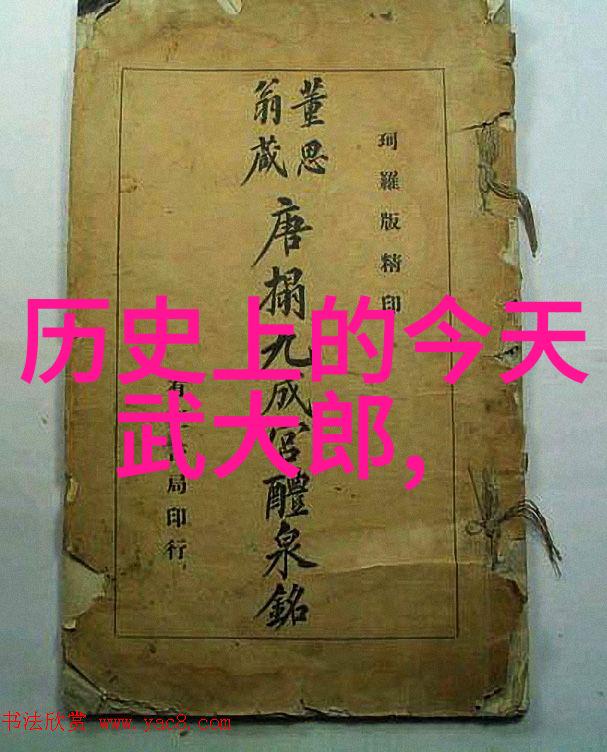 珂羅版精印
董思
翁藏
唐搨九成宮醴泉銘
局印行
历史上的今天
武大郎,
书法欣赏 www.yac8.com